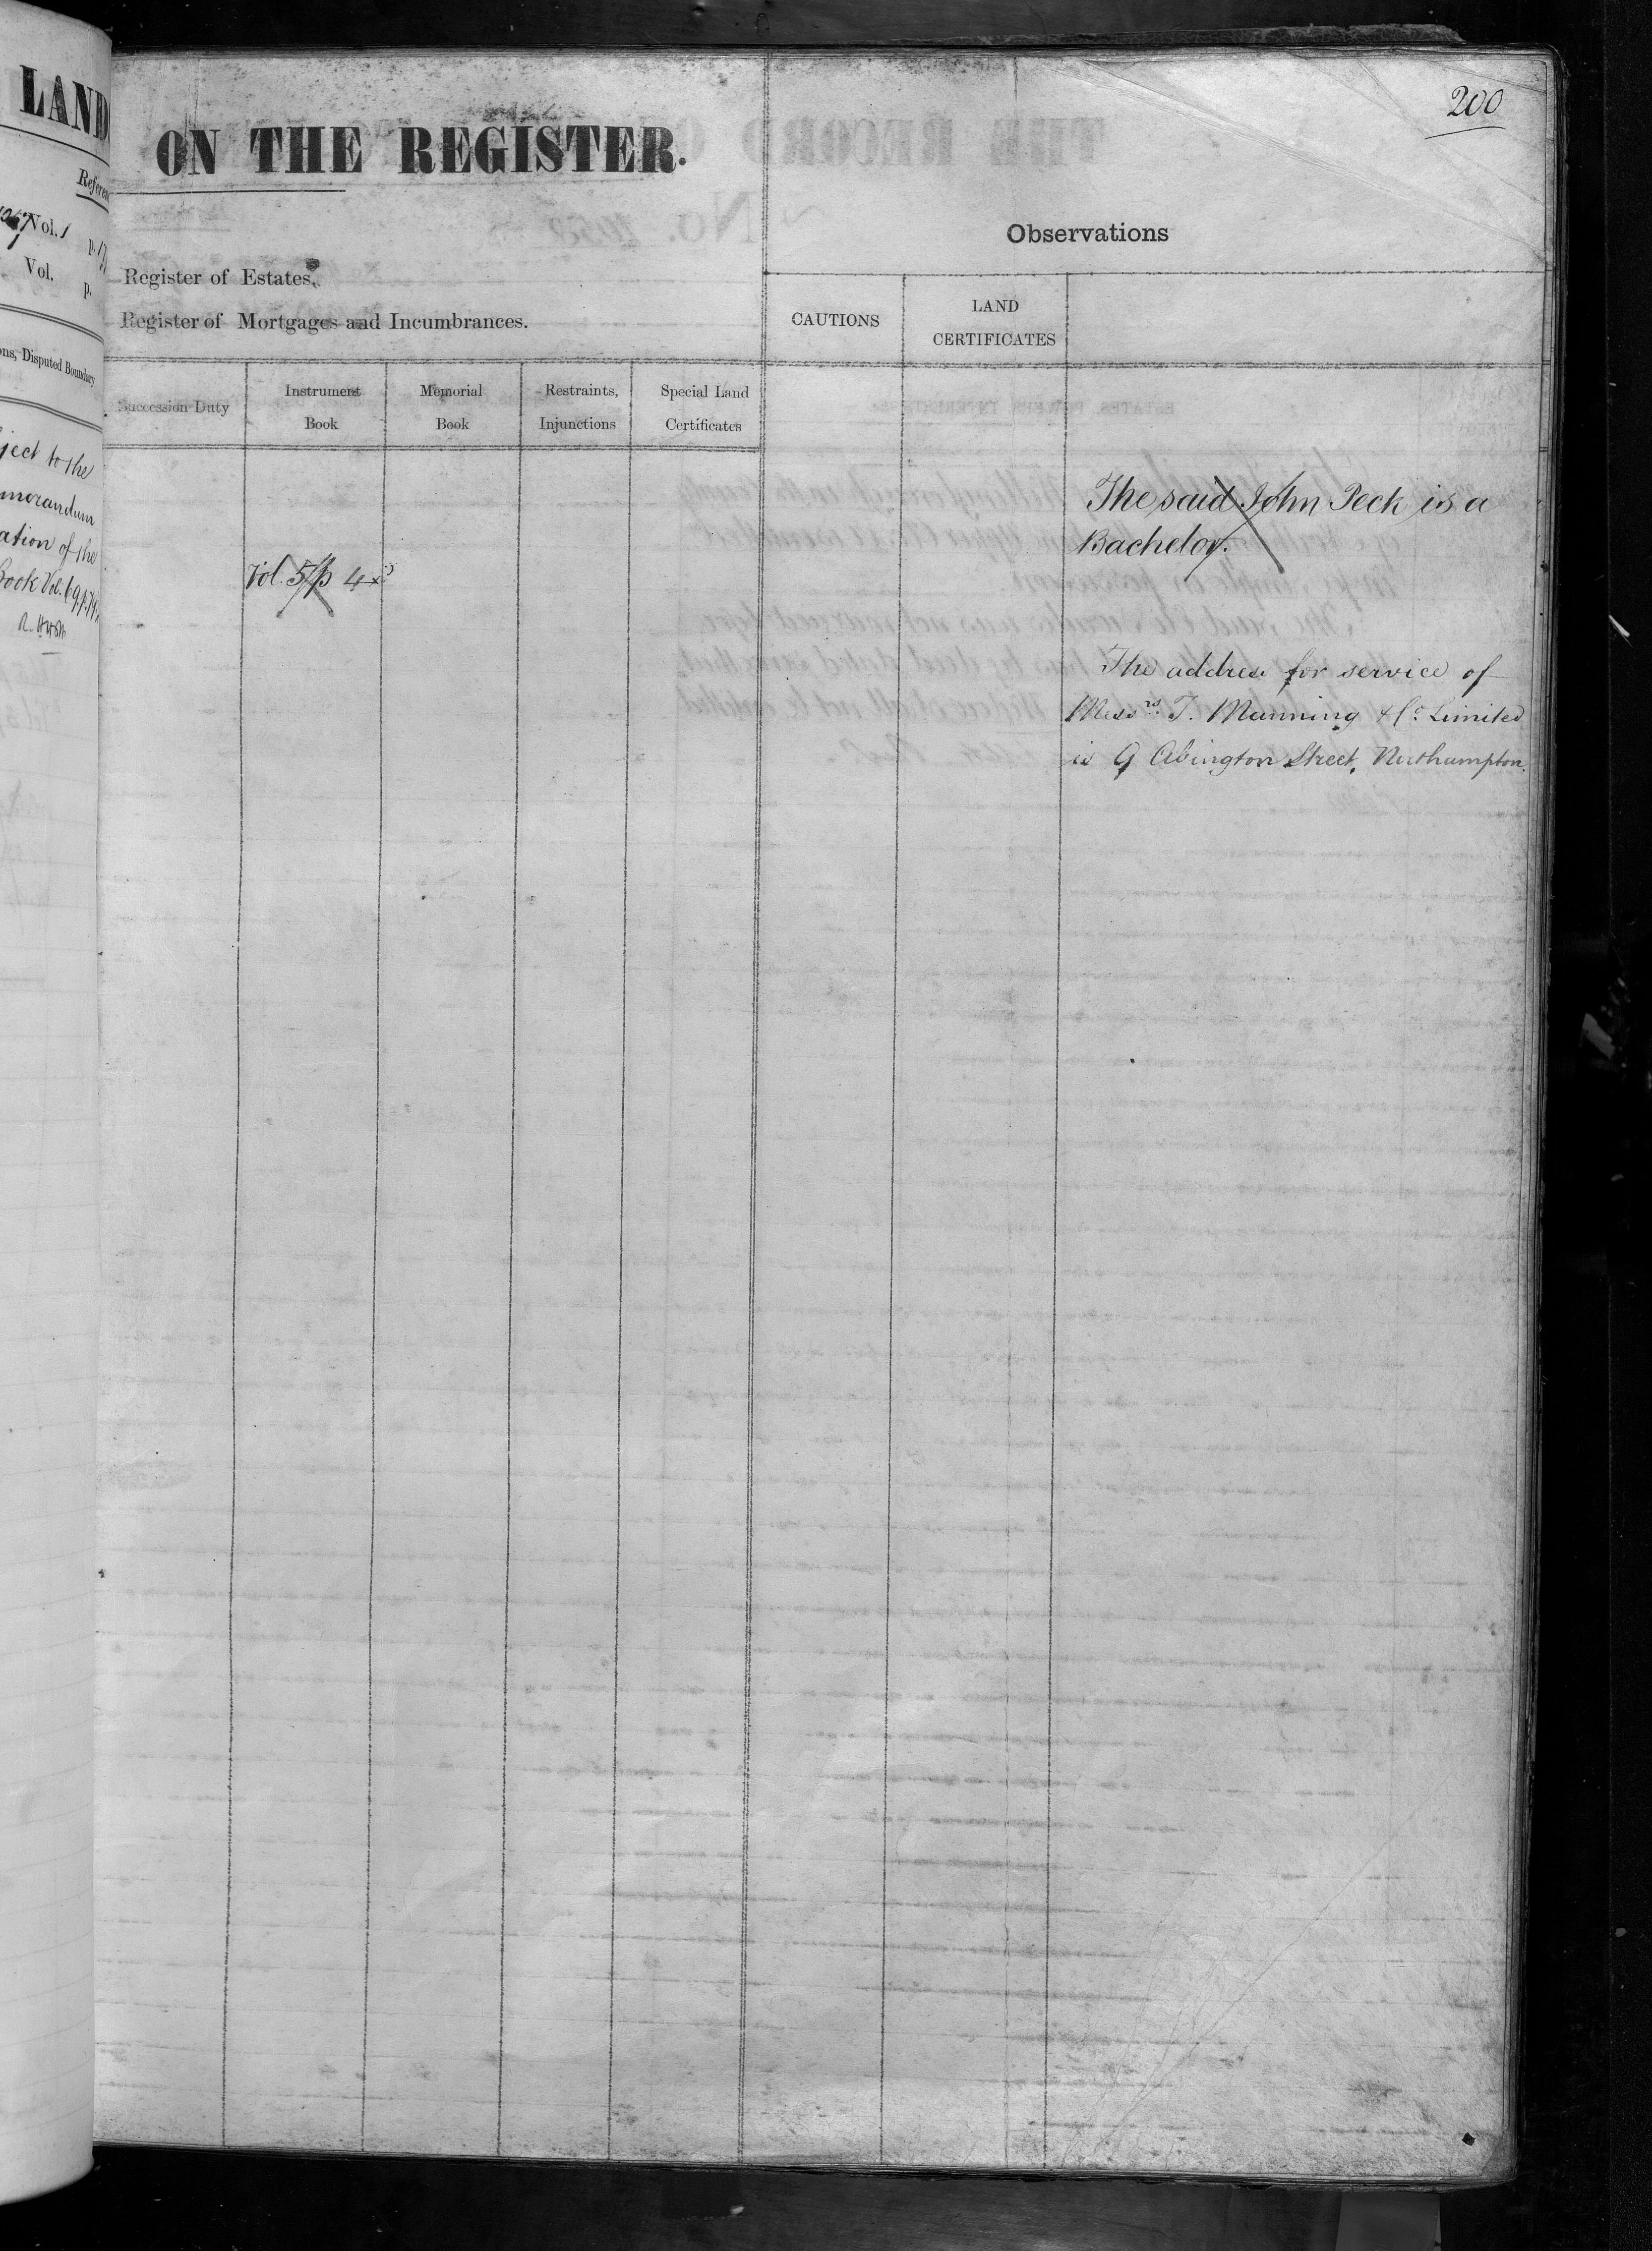 LAND
Vol. 1
Vol.
p.
ons, Disputed Boundary
ject to the
morandum
ation of the
Book Vol.
200
ON THE REGISTER.
Register of Estates.
Register of Mortgages and Incumbrances.
Observations
CAUTIONS
LAND
CERTIFICATES
Succession Duty
Instrument
Book
Memorial
Book
Restraints,
Injunctions
Special Land
Certificates
Vol. 5 p
The said John Peck is a
Bachelor.
The address for service of
Messrs. T. Manning & Co. Limited
is 9 Abington Street, Northampton.